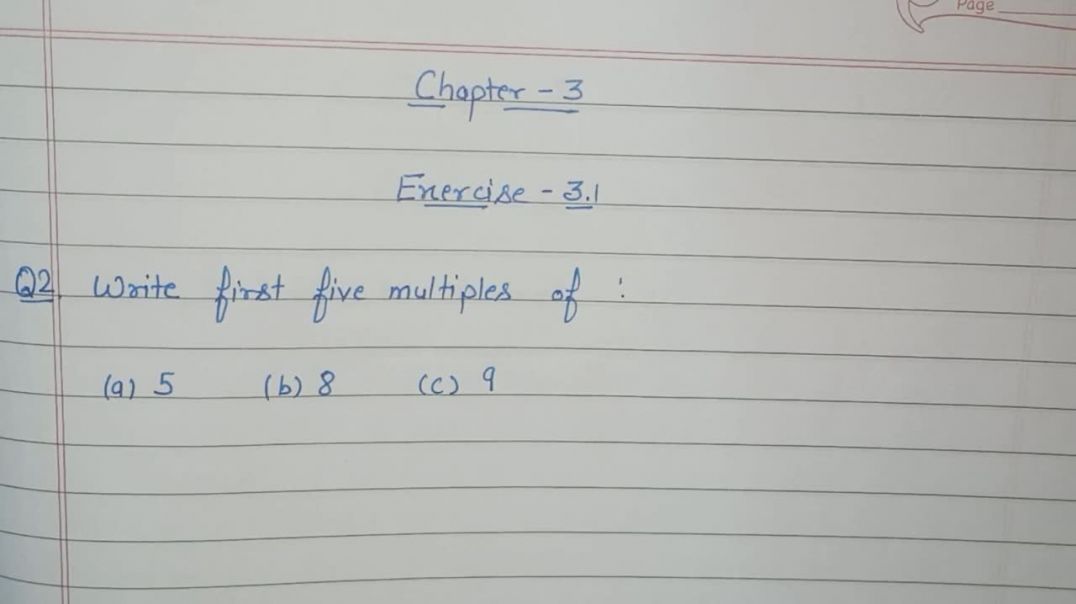 Page
Chapter - 3
Exercise - 3.1
Q2. Write first five multiples of :
(a) 5 (b) 8 (c) 9